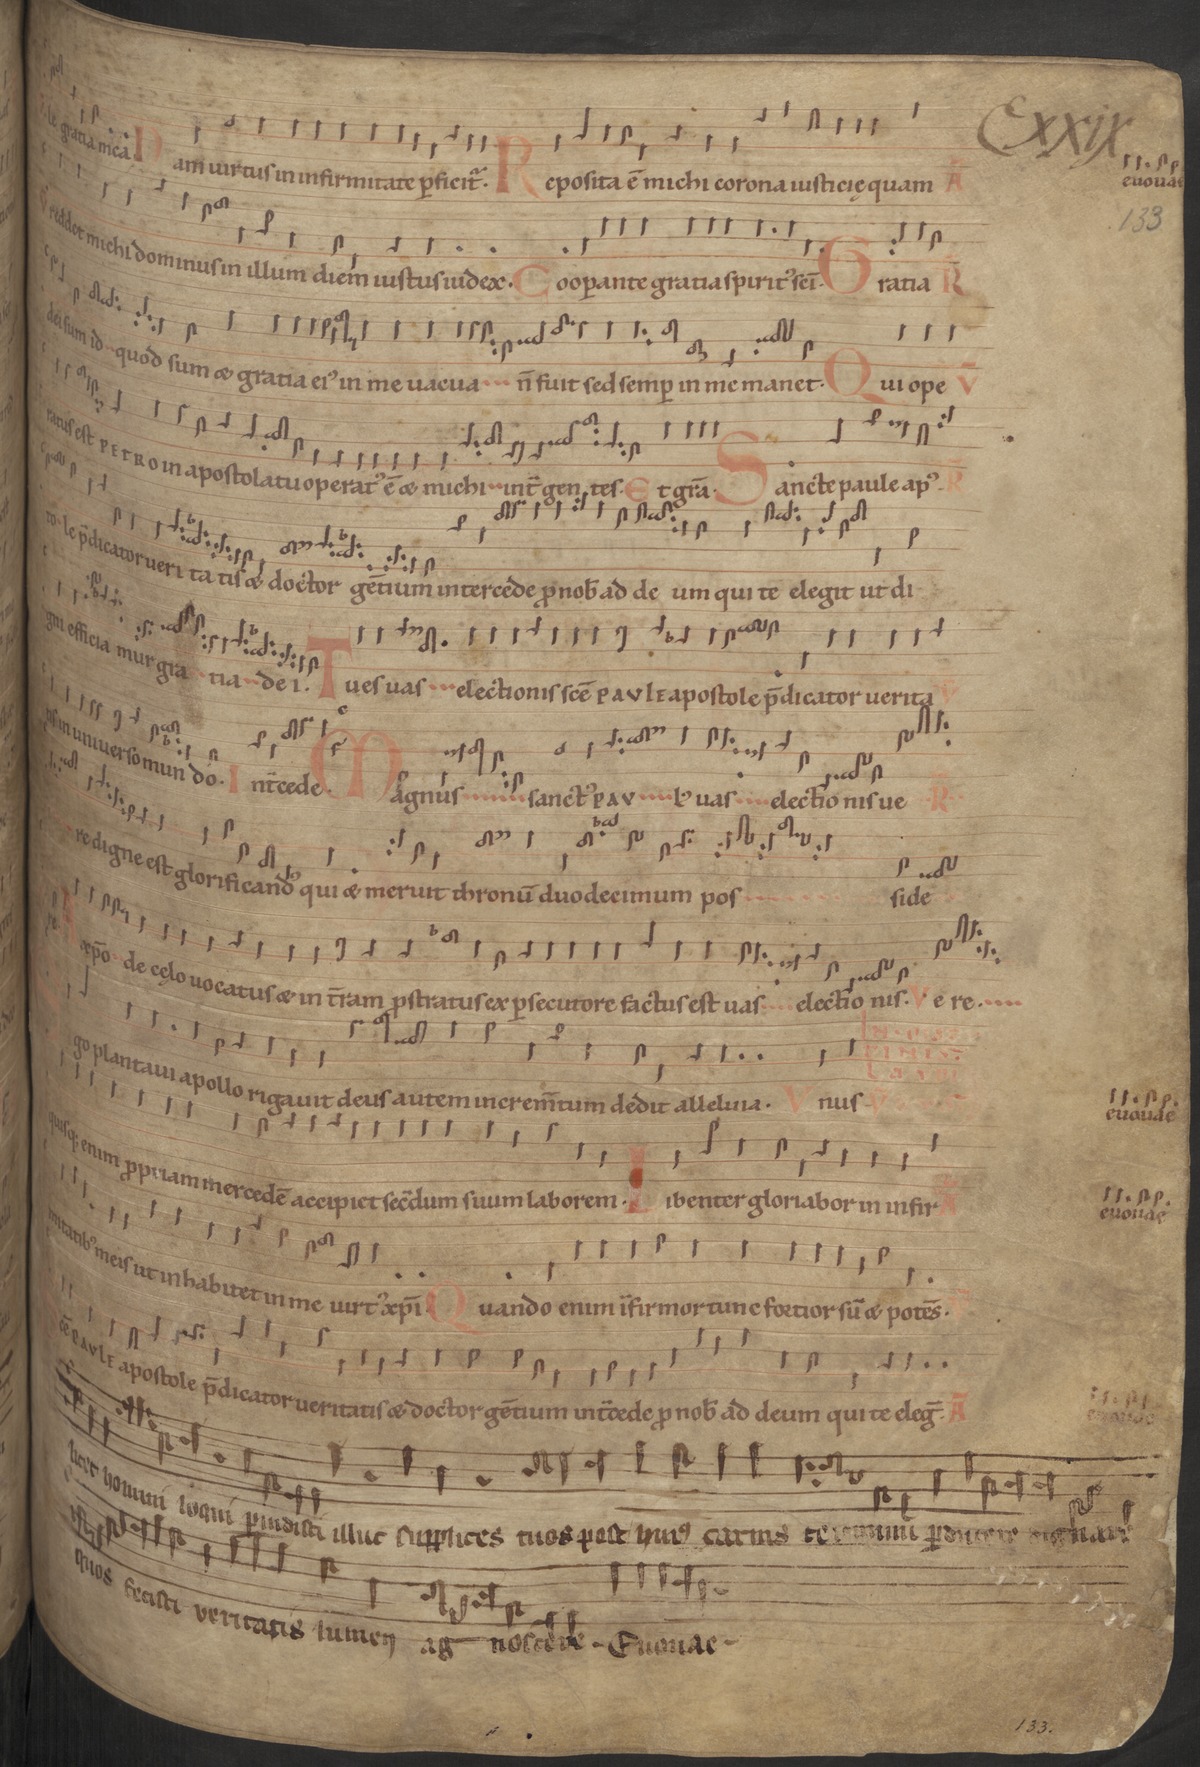 CXXIX
gratia mea. Nam uirtus in infirmitate ꝑficit᷑. Reposita ē michi corona iusticię quam A
euouae
133
reddet michi dominus in illum diem iustus iudex. Cooꝑante gratia spirit᷒ sc̄i. Gratia R
dei sum id quod sum & gratia ei᷒ in me uacua n̄ fuit sed semꝑ in me manet. Qui ope V
ratus est PETRO in apostolatu operat᷒ ē & michi int̄ gentes. Et gr̄a. Sancte paule ap᷒ R
le p̄dicator ueritatis & doctor gētium intercede ꝓ nob̄ ad deum qui te elegit ut di
gni efficiamur gratia dei. Tu es uas electionis sc̄e PAVLE apostole p̄dicator uerita V
tis in uniuerso mundo. Int̄cede. Magnus sanct᷒ PAVL᷒ uas electionis ue R
re digne est glorificand᷒ qui & meruit thronū duodecimum posside
xp̄o de cęlo uocatus & in t̄ram ꝓstratus ex ꝑsecutore factus est uas electionis. Vere.
go plantaui apollo rigauit deus autem increm̄tum dedit alleluia. Vnus
euouae
quisq; enim ꝓpriam mercedē accipiet sec̄dum suum laborem. Libenter gloriabor in infir A
euouae
mitatib᷒ meis ut inhabitet in me uirt᷒ xp̄i. Quando enim īfirmor tunc fortior sū & potēs.
PAVLE apostole p̄dicator ueritatis & doctor gētium int̄cede ꝓ nob̄ ad deum qui te eleḡ. A
euouae
licet homini loqui illuc supplices tuos post hui᷒ carnis
quos fecisti veritatis lumen agnoscere. Euouae
133.